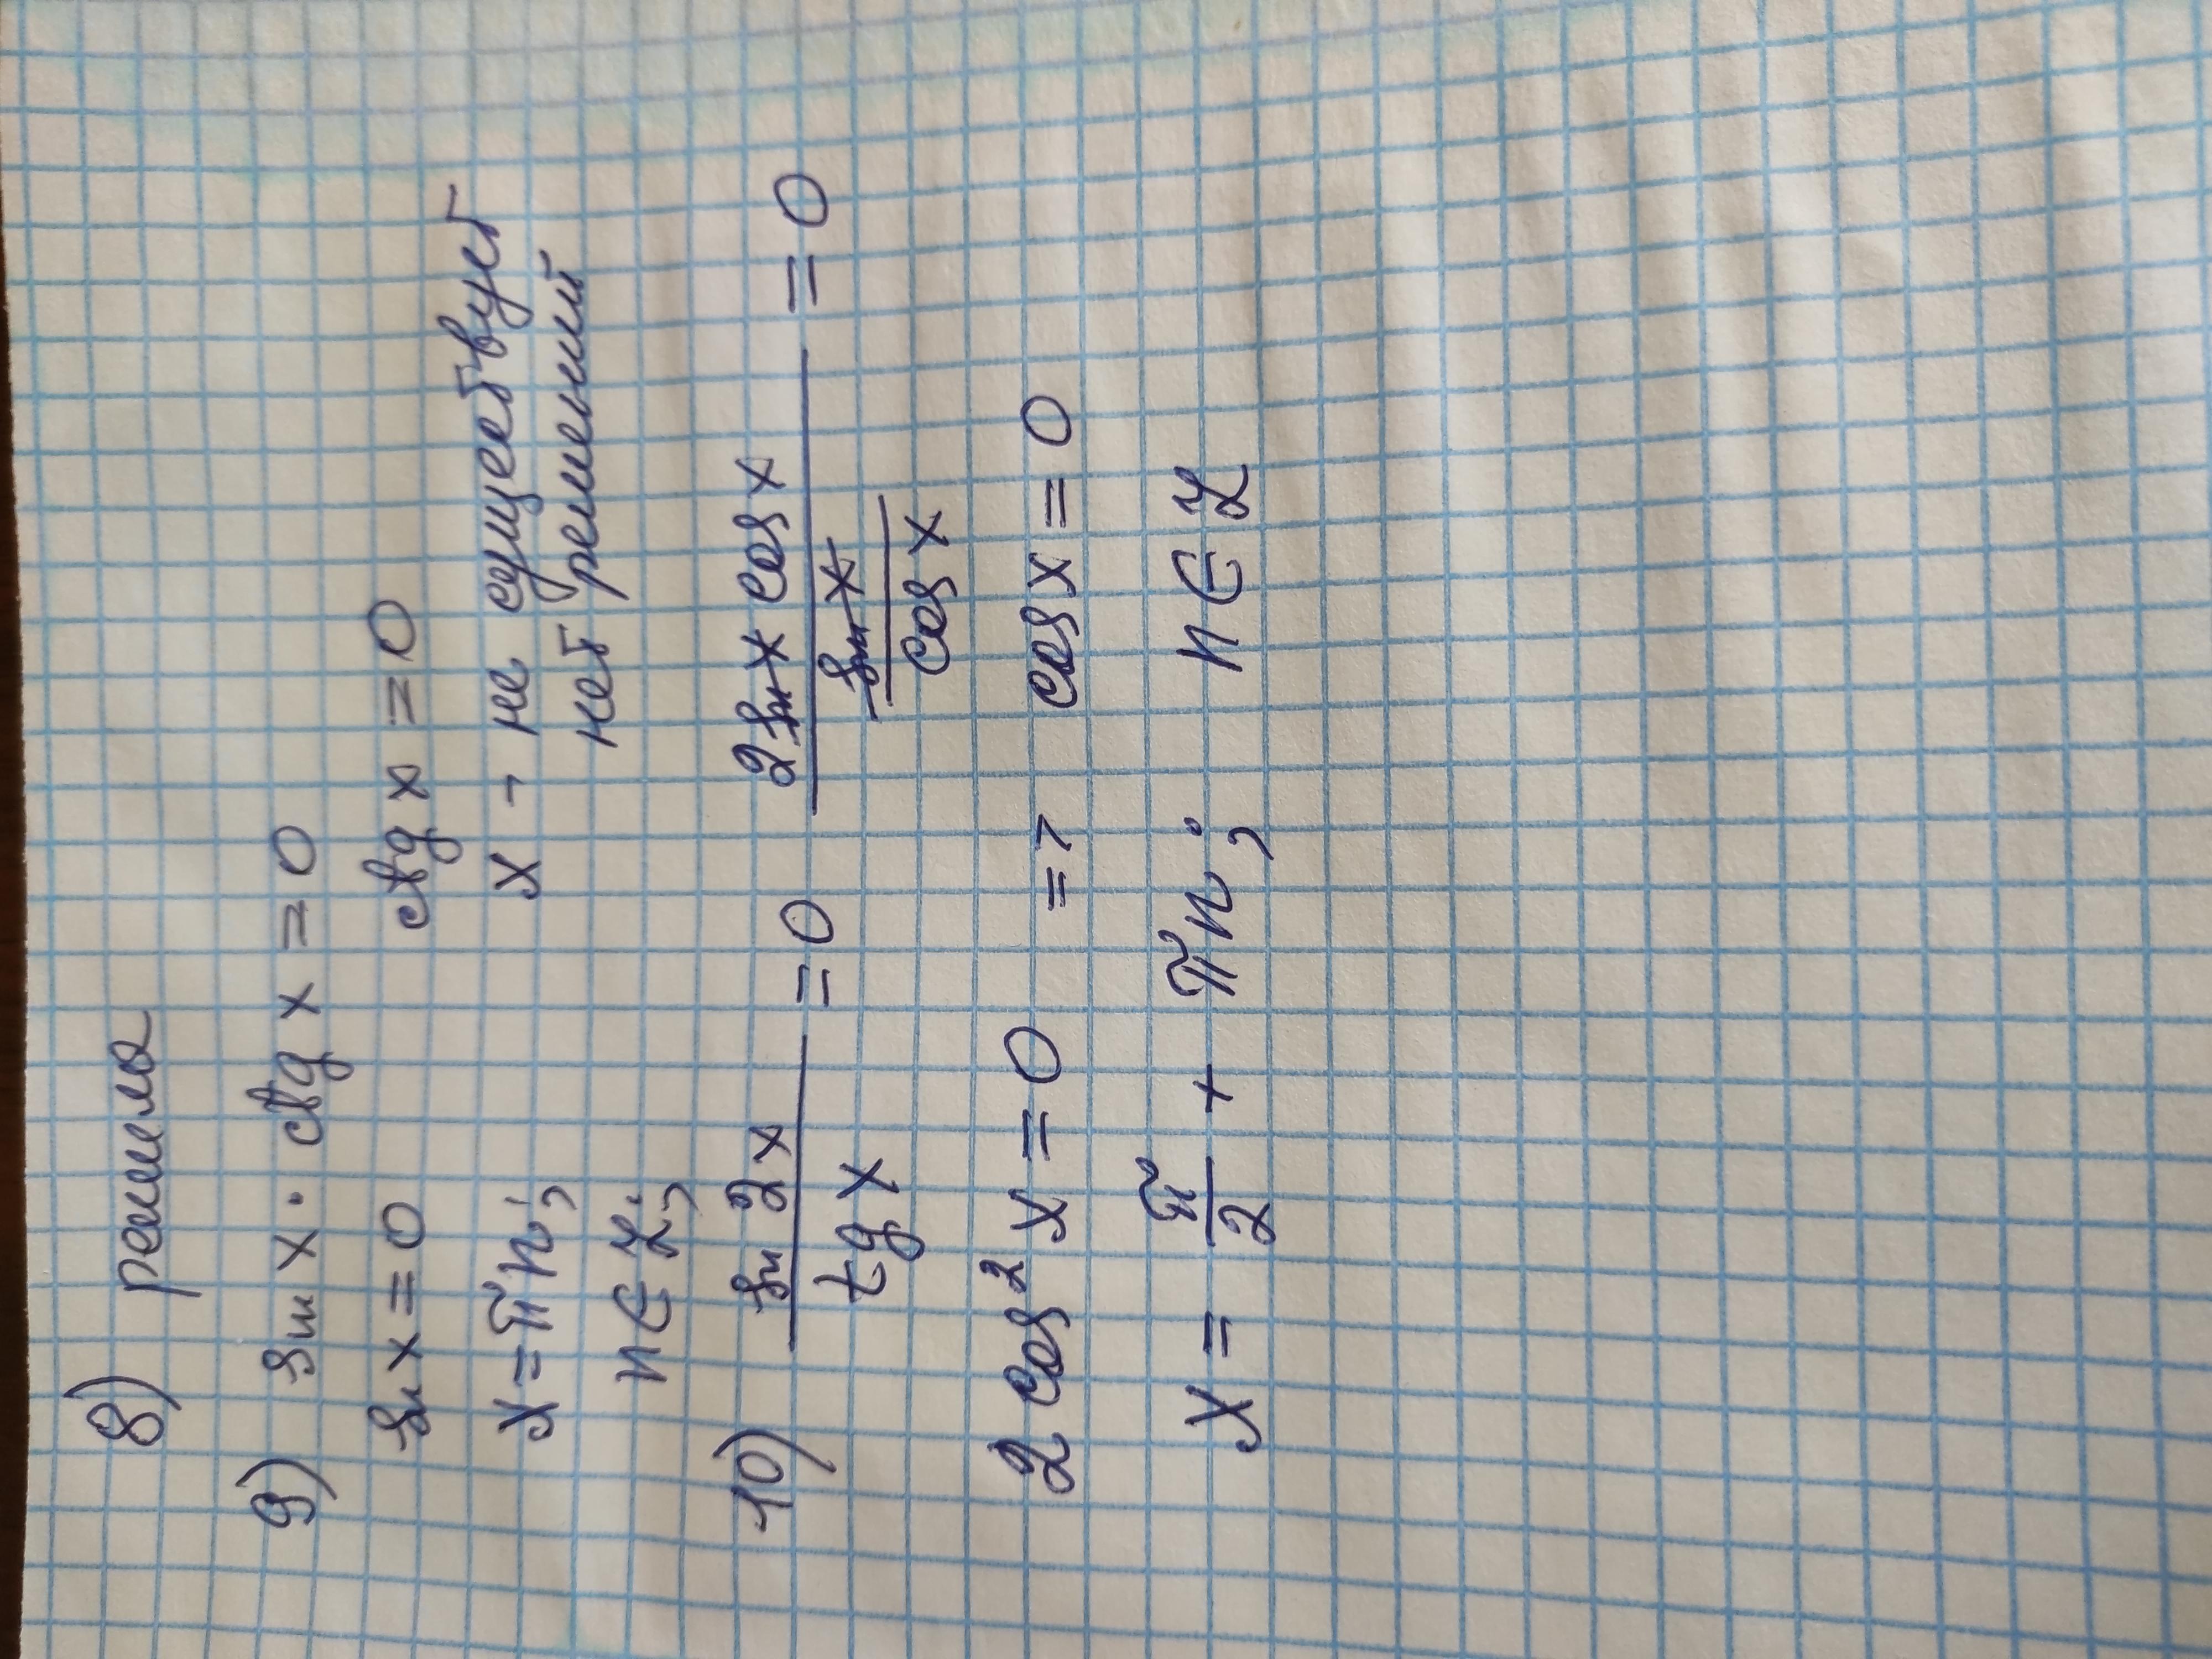 8) решила
9) sin x · ctg x = 0
sin x = 0 ctg x = 0
x = πn; x - не существует
n ∈ Z; нет решений
10) sin 2x / tg x = 0 2 sin x cos x / (sin x / cos x) = 0
2 cos² x = 0 => cos x = 0
x = π/2 + πn; n ∈ Z